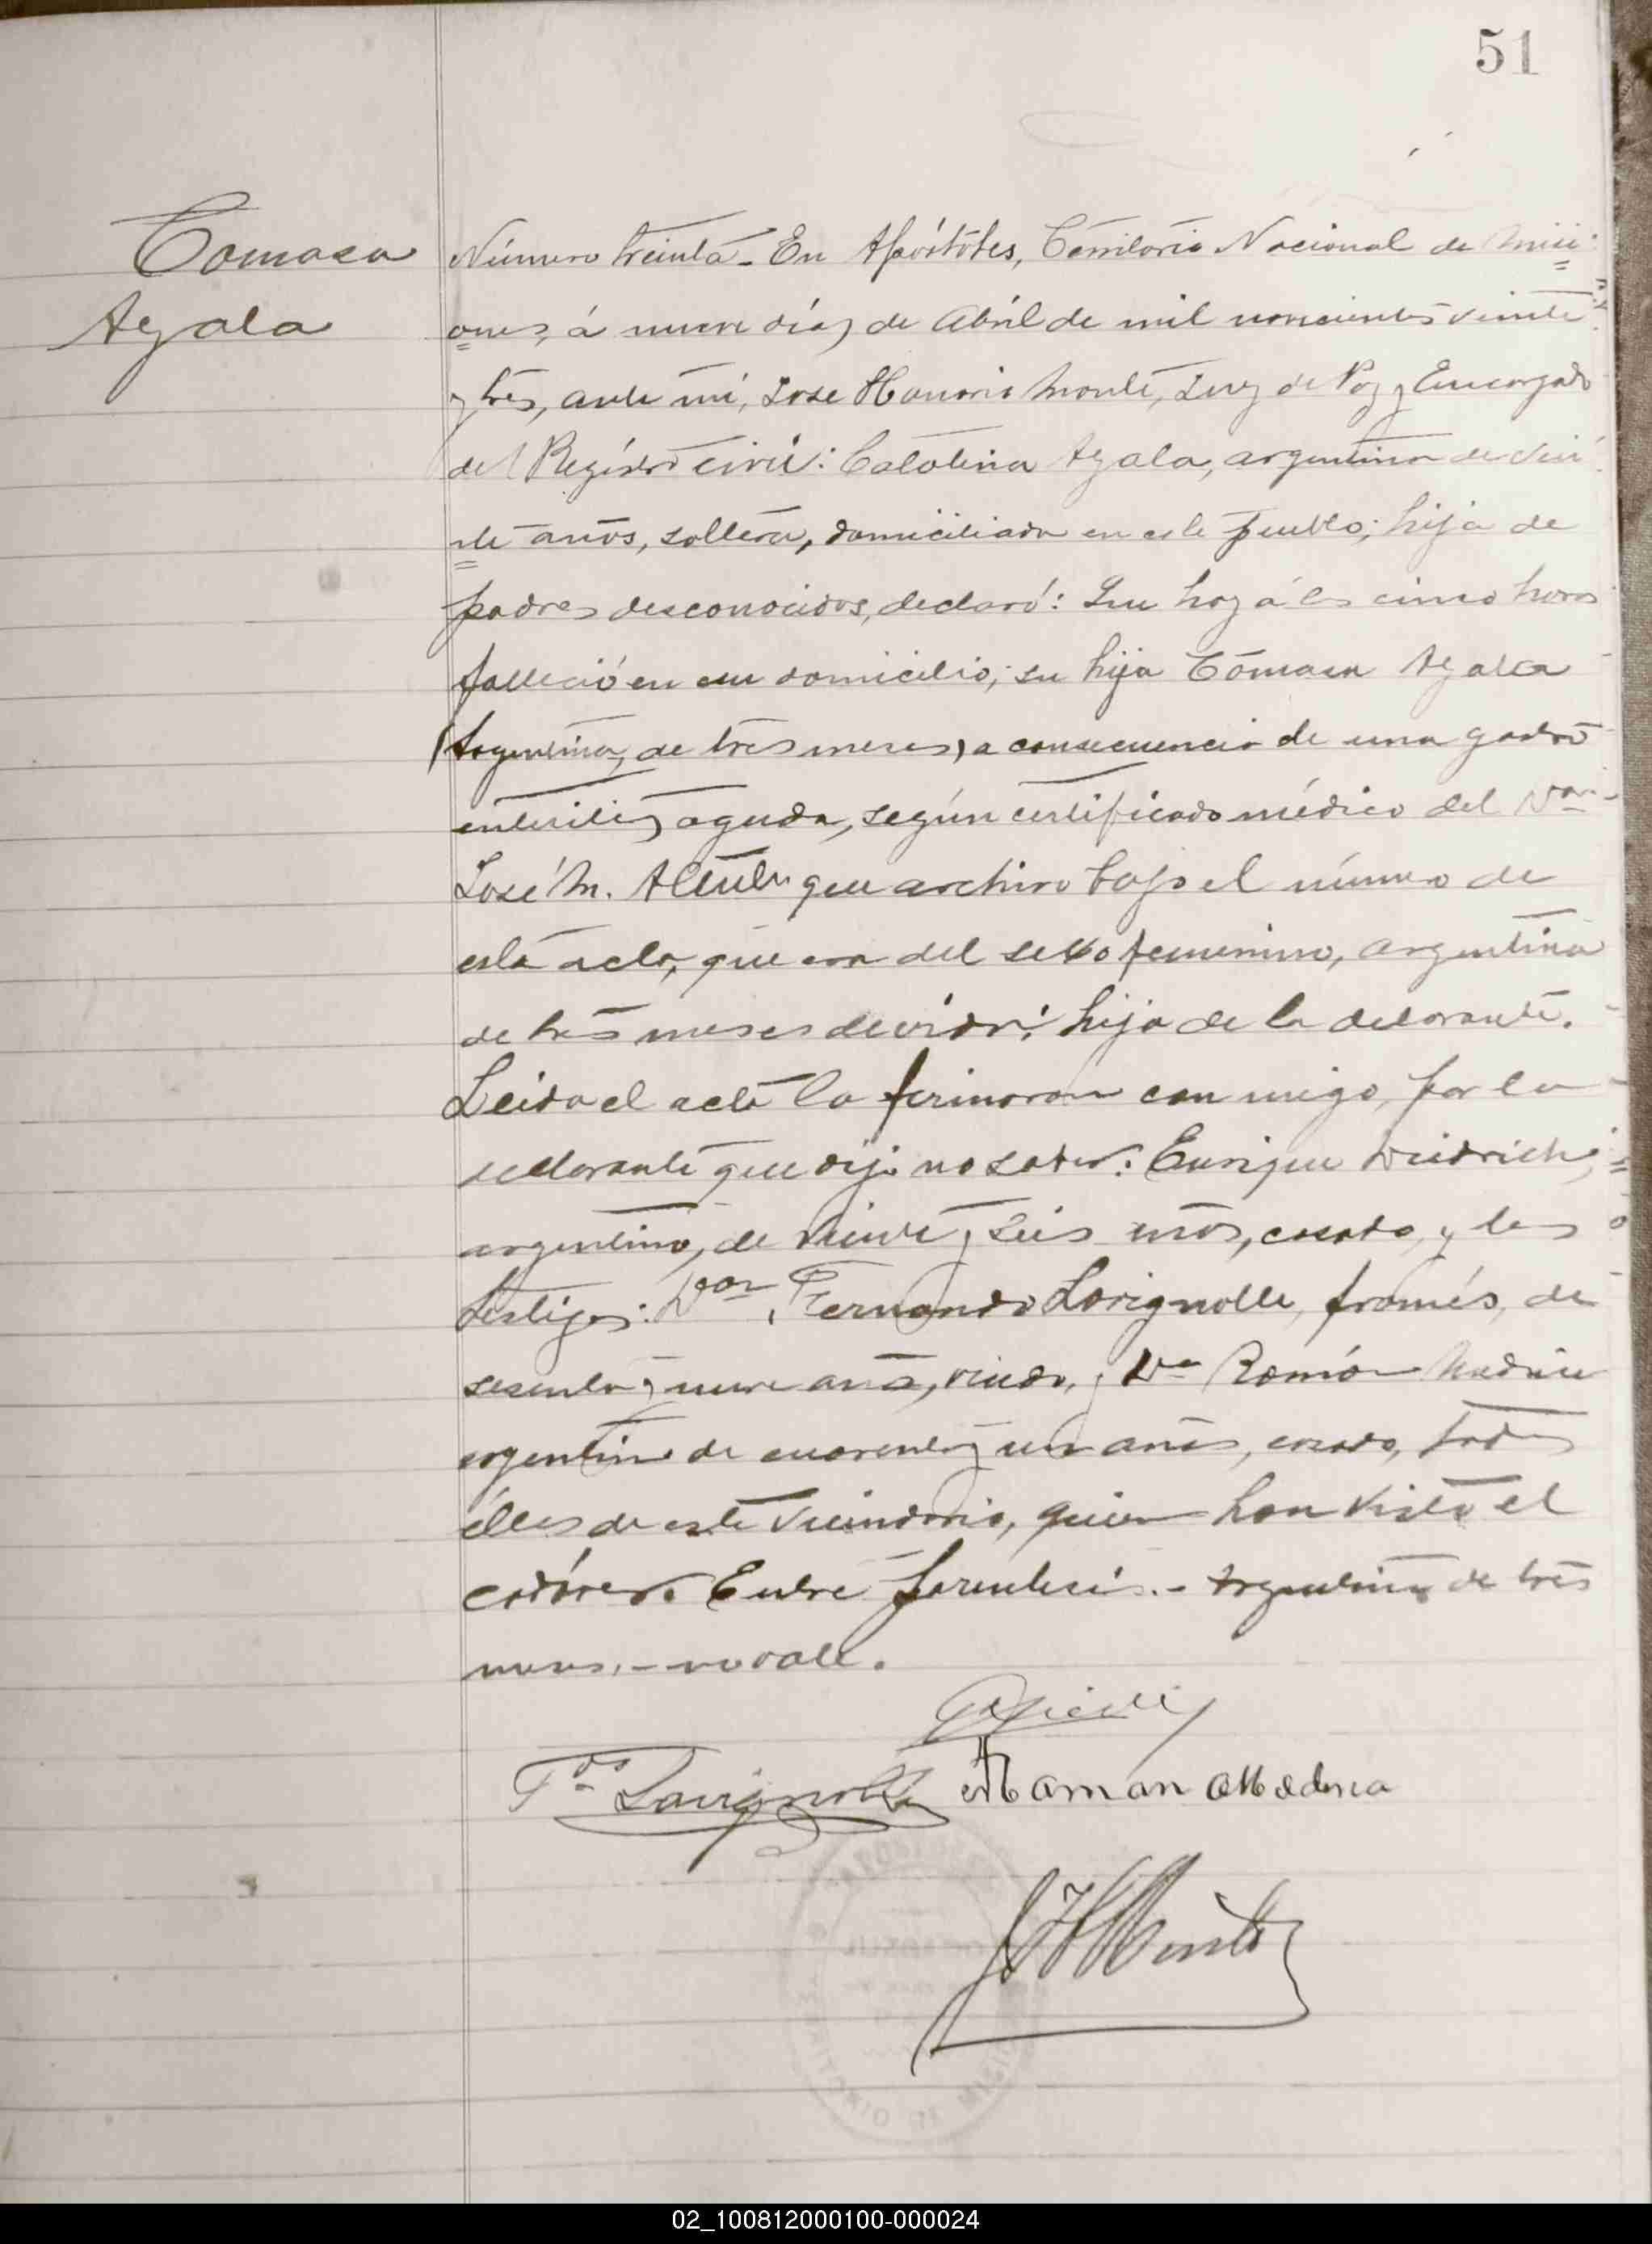 51
Tomasa
Ayala
Número treinta - En Apóstoles, Territorio Nacional de Misi=
ones, á nueve días de Abril de mil novecientos veinte
y tres, ante mí, Jose Honorio Monte, Juez de Paz y Encargado
del Registro Civil: Catalina Ayala, argentina de vein
=te años, soltera, domiciliada en este pueblo; hija de
padres desconocidos, declaró: Que hoy á las cinco horas
falleció en su domicilio; su hija Tomasa Ayala
(Argentina, de tres meses) a consecuencia de una gastro
enteritis aguda, según certificado médico del
José M. que archivo bajo el número de
esta acta, que era del sexo femenino, argentina
de tres meses de vida; hija de la declarante.
Leida el acta la firmaron conmigo, por la
declarante que dijo no saber: Enrique
argentino, de veinte y seis años, casado, y los
testigos: Don Fernando Lavignolle, francés, de
sesenta y nueve años, viudo, y Dn Ramón
argentino de cuarenta y un años, casado, todos
éllos de este vecindario, quienes han visto el
cadáver. Entre parentesis.- Argentina de tres
meses.- no vale.
Lavignolle